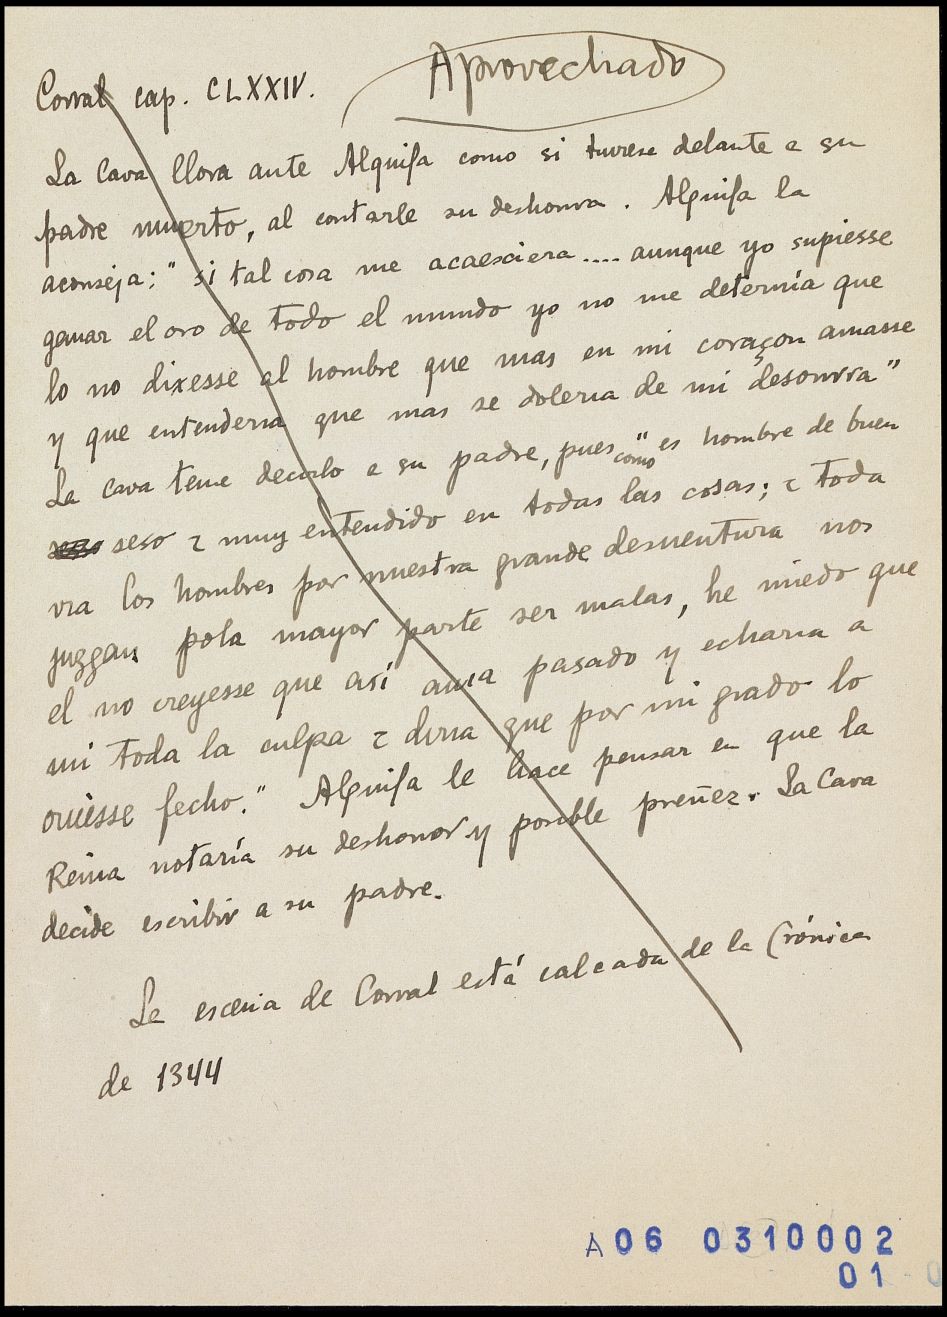 Aprovechado
Corral cap. CLXXIV.
La Cava llora ante Alquifa como si tuviese delante a su
padre muerto, al contarle su deshonra. Alquifa la
aconseja: "si tal cosa me acaesciera.... aunque yo supiesse
ganar el oro de todo el mundo yo no me deternía que
lo no dixesse al hombre que mas en mi coraçon amasse
y que entenderia que mas se doleria de mi desonrra"
La Cava teme decirlo a su padre, pues "como es hombre de buen
seso τ muy entendido en todas las cosas; τ toda
via los hombres por nuestra grande desuentura nos
juzgan pola mayor parte ser malas, he miedo que
el no creyesse que asi auia pasado y echaria a
mi toda la culpa τ diria que por mi grado lo
ouiesse fecho." Alquifa le hace pensar en que la
Reina notaría su deshonor y posible preñez. La Cava
decide escribir a su padre.
La escena de Corral está calcada de la Crónica
de 1344
A06 0310002
01